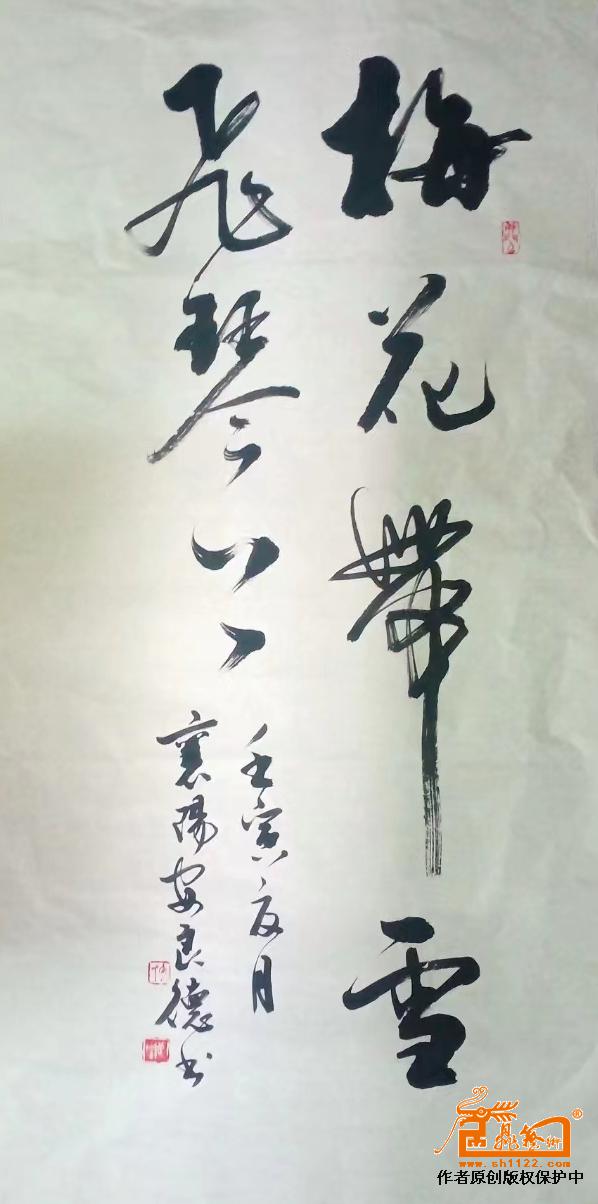 梅花帶雪
飛琴上
壬寅夏月
襄陽安良德书
www.sh1122.com
作者原创版权保护中